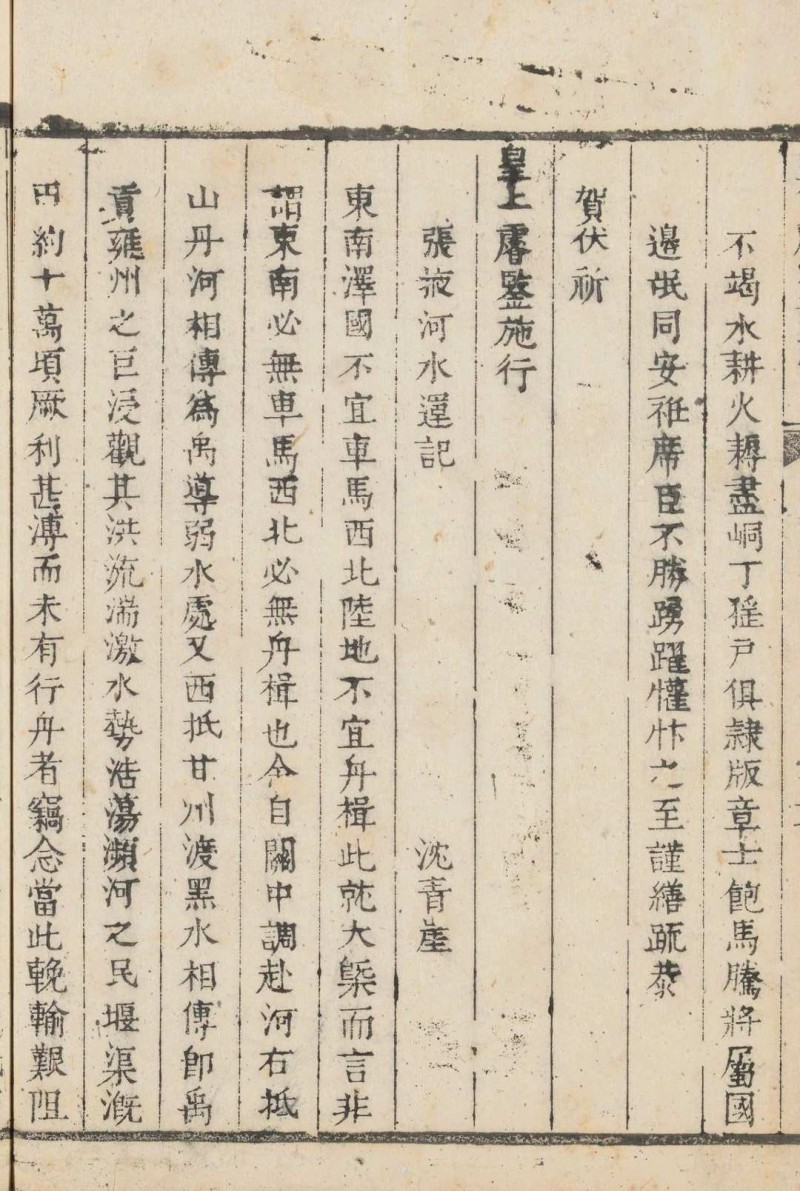 不竭水耕火耨盡峒丁猺戸俱隷版章士飽馬騰將屬國
邊氓同安袵席臣不勝踴躍懽忭之至謹繕疏恭
賀伏祈
皇上睿鑒施行
張掖河水運記 沈青崖
東南澤國不宜車馬西北陸地不宜舟楫此就大槩而言非
謂東南必無車馬西北必無舟楫也今自關中調赴河右抵
山丹河相傳爲禹導弱水處又西抵甘州渡黑水相傳卽禹
貢雍州之巨浸觀其洪流湍激水勢浩蕩瀕河之民堰渠漑
田約十萬頃厥利甚溥而未有行舟者竊念當此輓輸艱阻